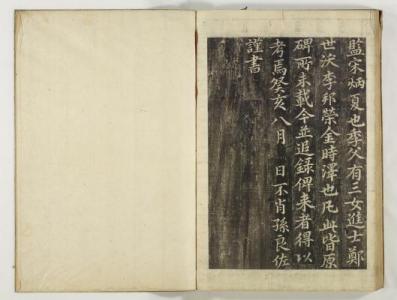 監宋炳夏也季父有三女進士鄭
世泼李邦榮金時澤也凡此皆原
碑所未載今並追錄俾来者得以
考焉癸亥八月　日不肖孫良佐
謹書